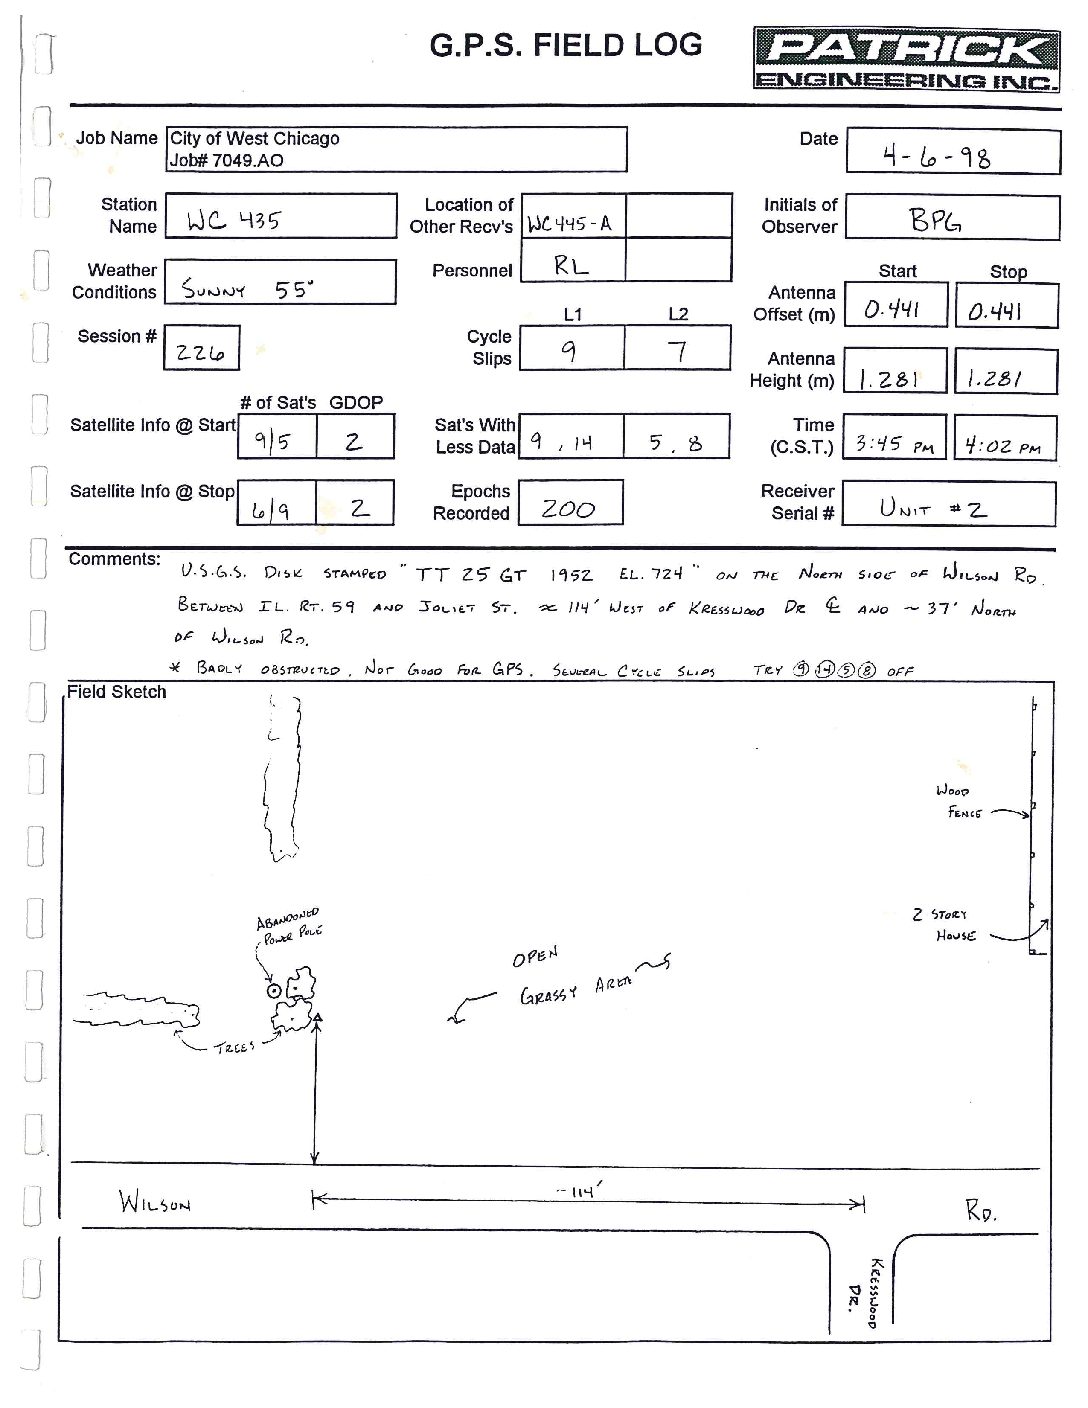 G.P.S. FIELD LOG
PATRICK
ENGINEERING INC.
Job Name City of West Chicago
Job# 7049.AO
Date 4-6-98
Station Name WC 435
Location of Other Recv's WC445-A
Initials of Observer BPG
Weather Conditions SUNNY 55°
Personnel RL
Start Stop
Antenna Offset (m) 0.441 0.441
Session # 226
L1 L2
Cycle Slips 9 7
Antenna Height (m) 1.281 1.281
# of Sat's GDOP
Satellite Info @ Start 9/5 2
Sat's With Less Data 9, 14 5, 8
Time (C.S.T.) 3:45 PM 4:02 PM
Satellite Info @ Stop 6/9 2
Epochs Recorded 200
Receiver Serial # UNIT #2
Comments:
U.S.G.S. DISK STAMPED "TT 25 GT 1952 EL. 724" ON THE NORTH SIDE OF WILSON RD.
BETWEEN IL. RT. 59 AND JOLIET ST. ≈ 114' WEST OF KRESSWOOD DR ℄ AND ~ 37' NORTH
OF WILSON RD.
* BADLY OBSTRUCTED, NOT GOOD FOR GPS. SEVERAL CYCLE SLIPS TRY ⑨ ⑭ ⑤ ⑧ OFF
Field Sketch
WOOD
FENCE
ABANDONED
POWER POLE
2 STORY
HOUSE
OPEN
GRASSY AREA
TREES
WILSON
~114'
RD.
KRESSWOOD
DR.